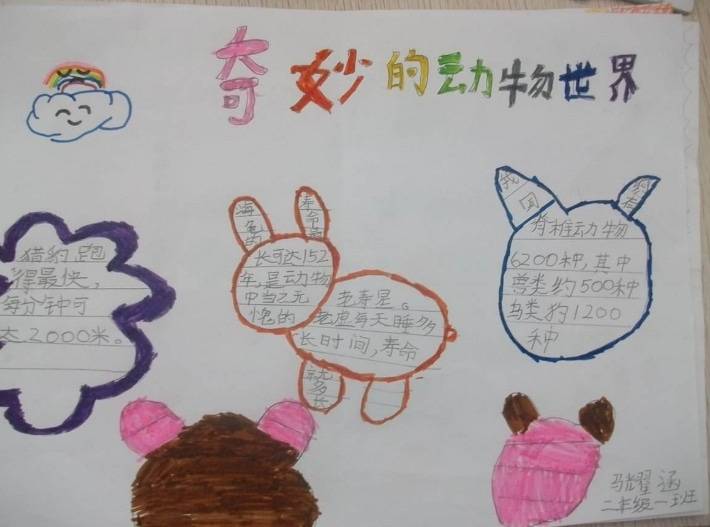 奇妙的动物世界
猎豹跑
得最快,
每分钟可
达2000米。
海龟的
寿命最
长可达152
年,是动物
中当之无
愧的
老寿星。
老虎每天睡多
长时间,寿命
就多
长
我国
约有
脊椎动物
6200种,其中
兽类约500种
鸟类约1200
种
骆耀涵
二年级一班